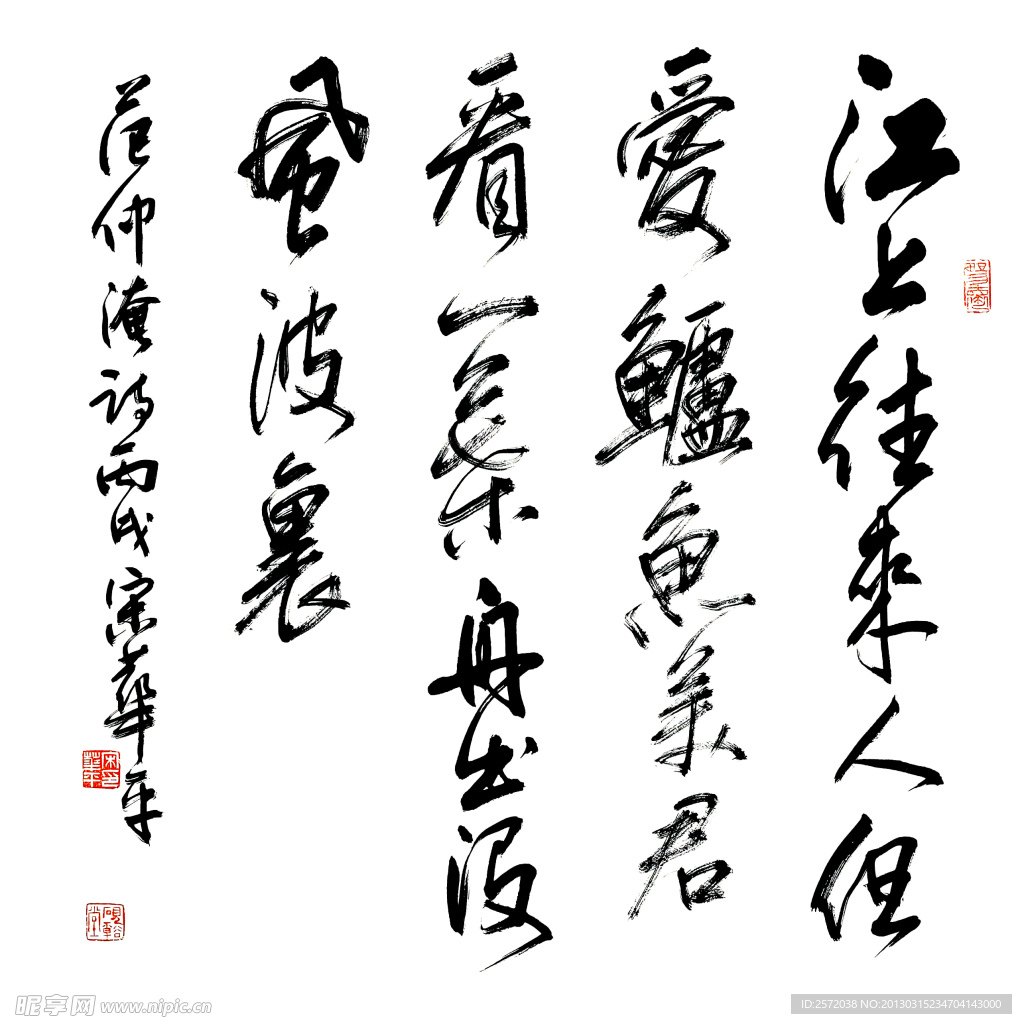 江上往來人但
愛鱸魚美君
看一葉舟出沒
風波裏
范仲淹詩丙戌宋華平
昵享网 www.nipic.cn
ID:2572038 NO:20130315234704143000